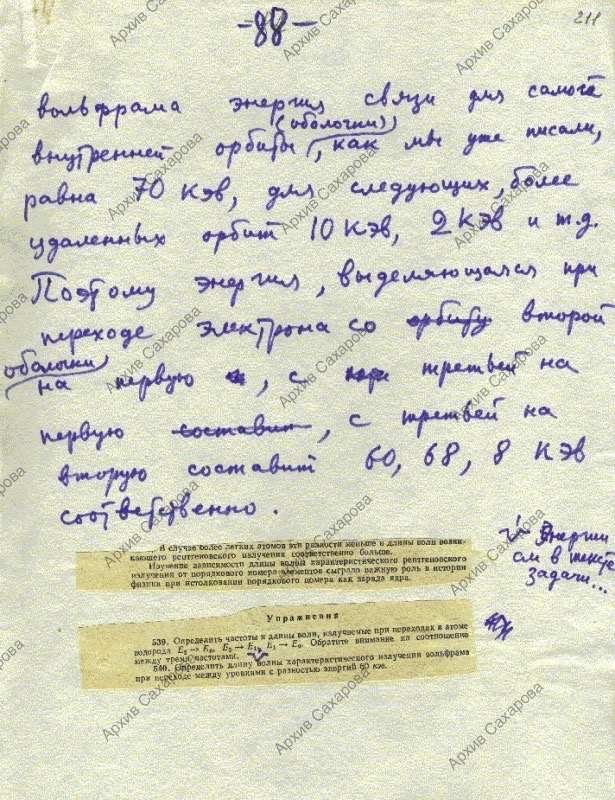 -88-
211
вольфрама энергия связи для самой
внутренней орбиты (оболочки), как мы уже писали,
равна 70 кэв, для следующих, более
удаленных орбит 10 кэв, 2 кэв и т.д.
Поэтому энергия, выделяющаяся при
переходе электрона со орбиту второй
оболочки
на первую, с третьей на
первую составит, с третьей на
вторую составит 60, 68, 8 кэв
соответственно.
В случае более легких атомов эти разности меньше и длины волн возни-
кающего рентгеновского излучения соответственно больше.
Изучение зависимости длины волны характеристического рентгеновского
излучения от порядкового номера элементов сыграло важную роль в истории
физики при истолковании порядкового номера как заряда ядра.
Энергии
см в тексте
задачи...
Упражнения
539. Определить частоты и длины волн, излучаемые при переходах в атоме
водорода E₂ → E₀, E₂ → E₁, E₁ → E₀. Обратите внимание на соотношение
между тремя частотами.
540. Определить длину волны характеристического излучения вольфрама
при переходе между уровнями с разностью энергий 60 кэв.
Архив Сахарова